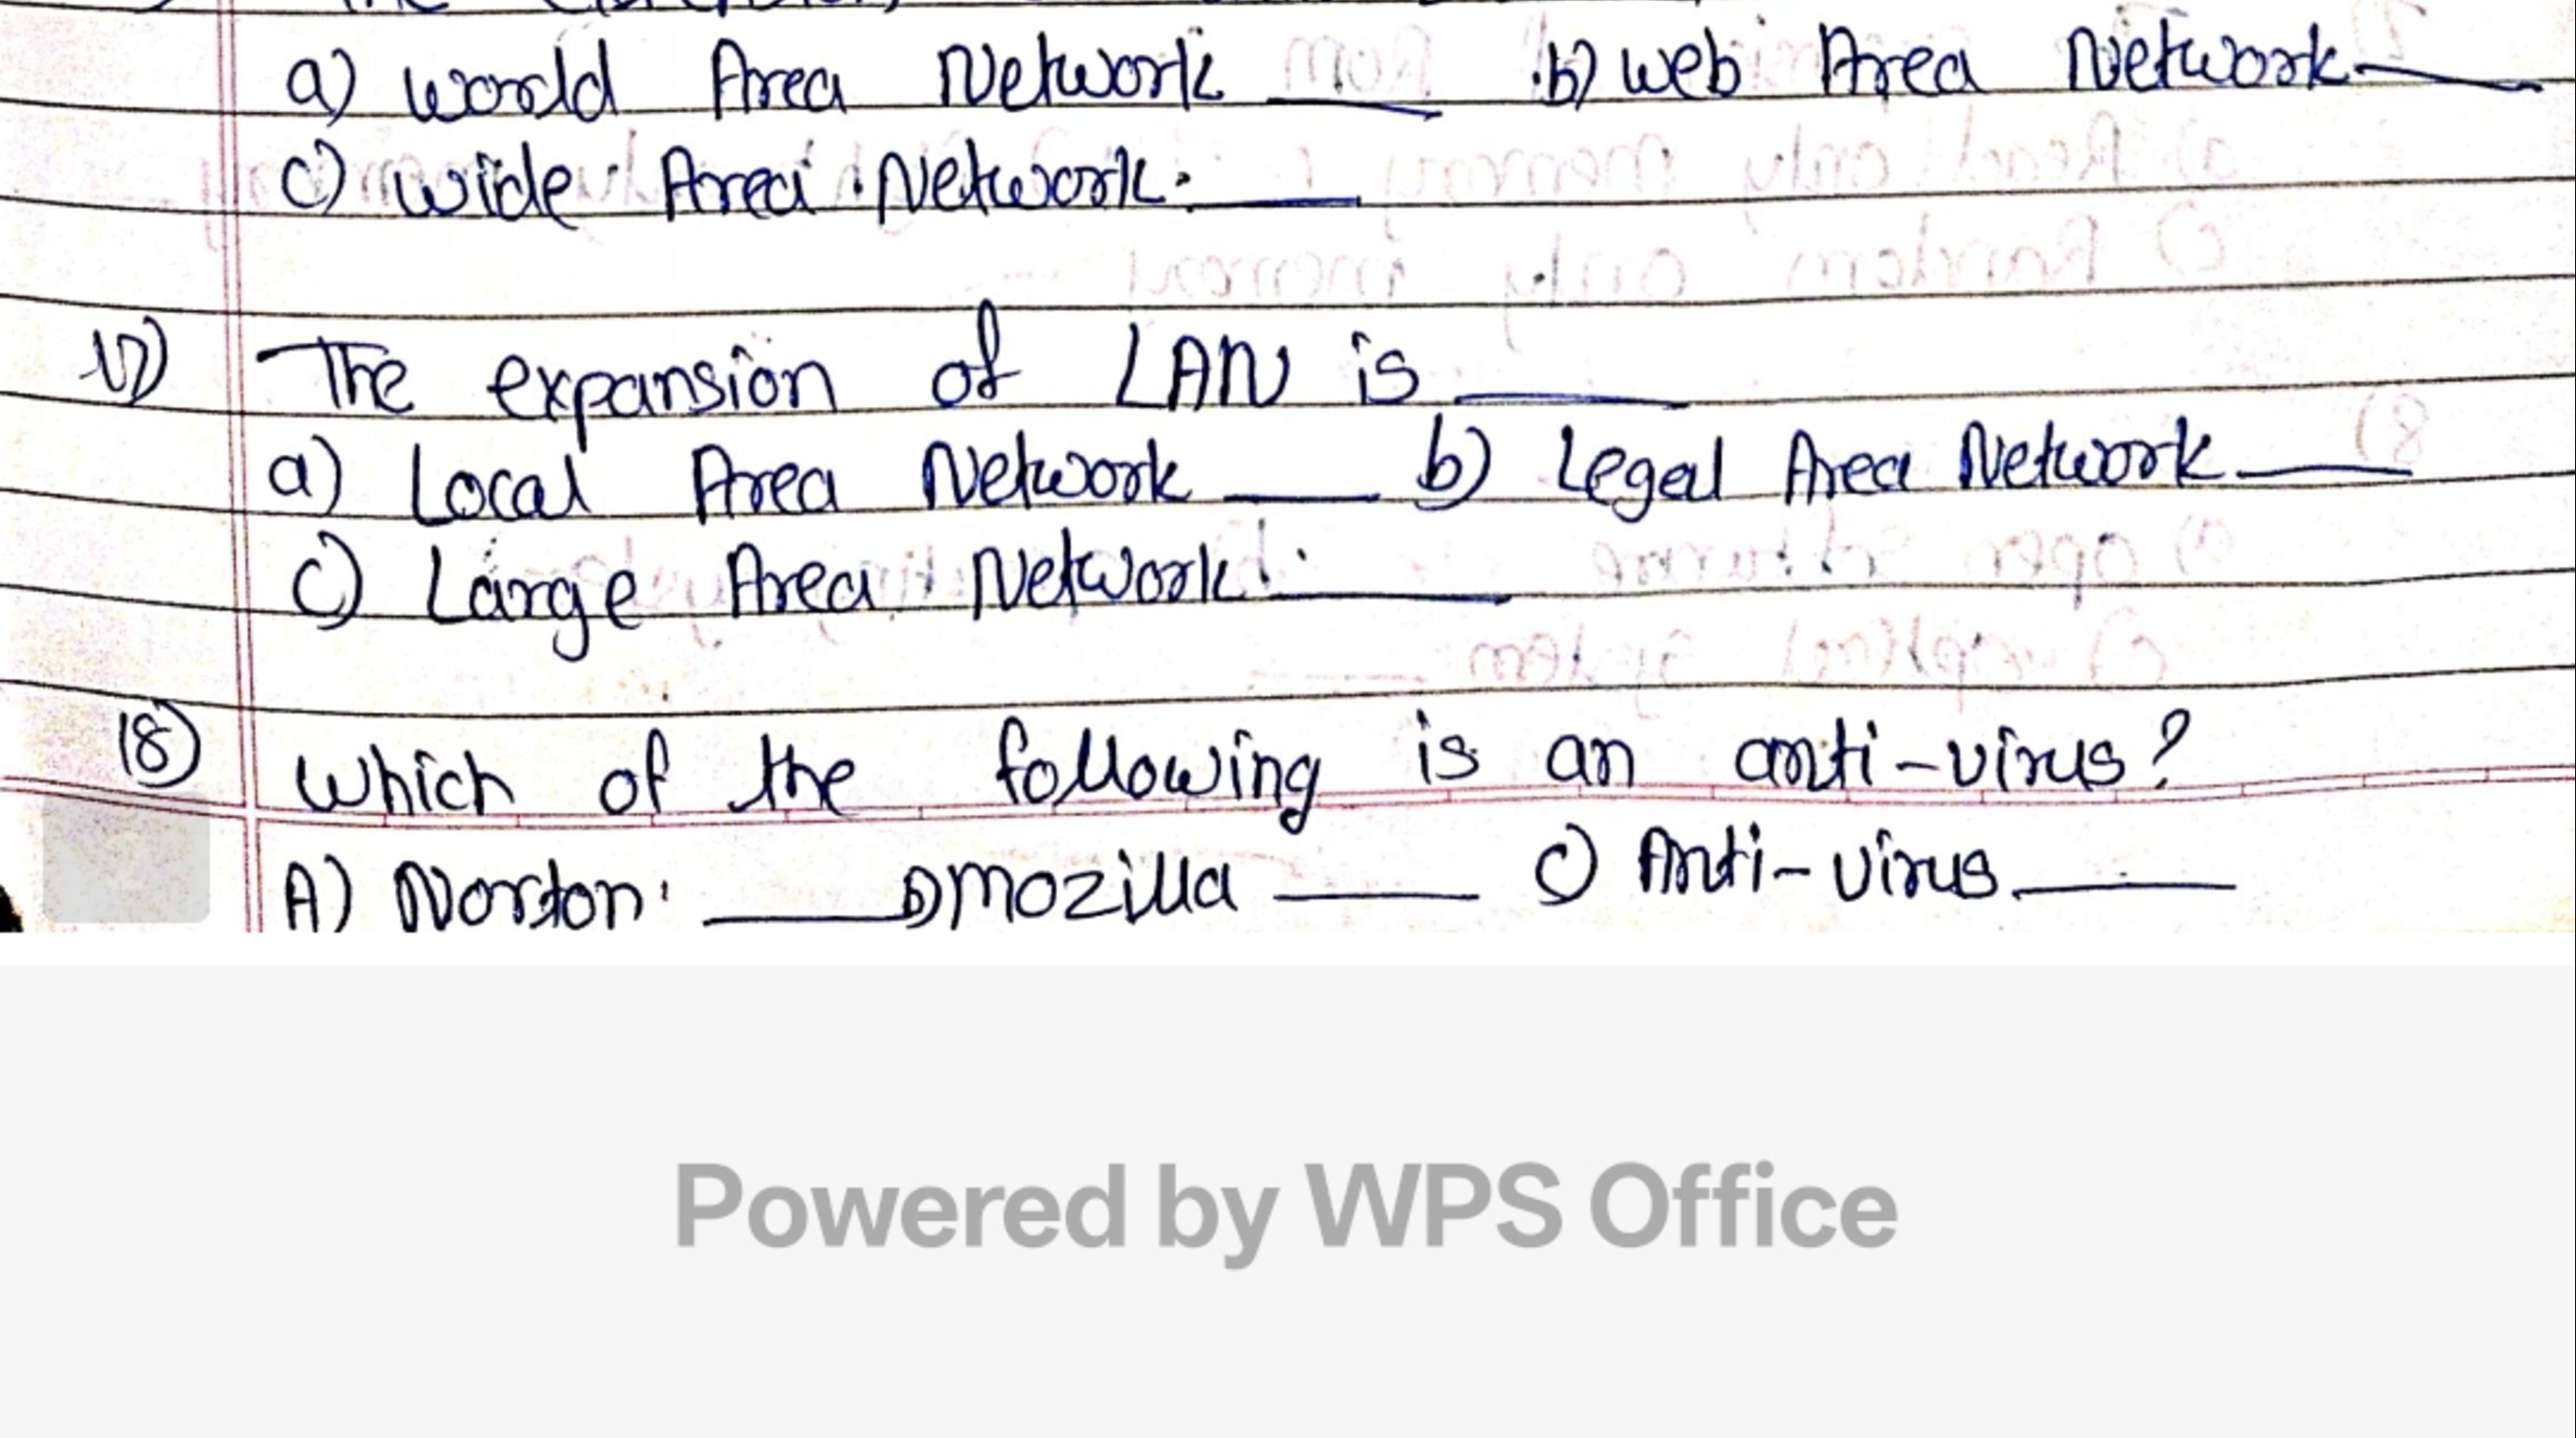 a) world Area Network ____ b) web Area Network ____
c) wide Area Network. ____
17) The expansion of LAN is ____
a) Local Area Network ____ b) Legal Area Network ____
c) Large Area Network. ____
18) Which of the following is an anti-virus?
A) Norton. ____ B) mozilla ____ c) Anti-virus ____
Powered by WPS Office